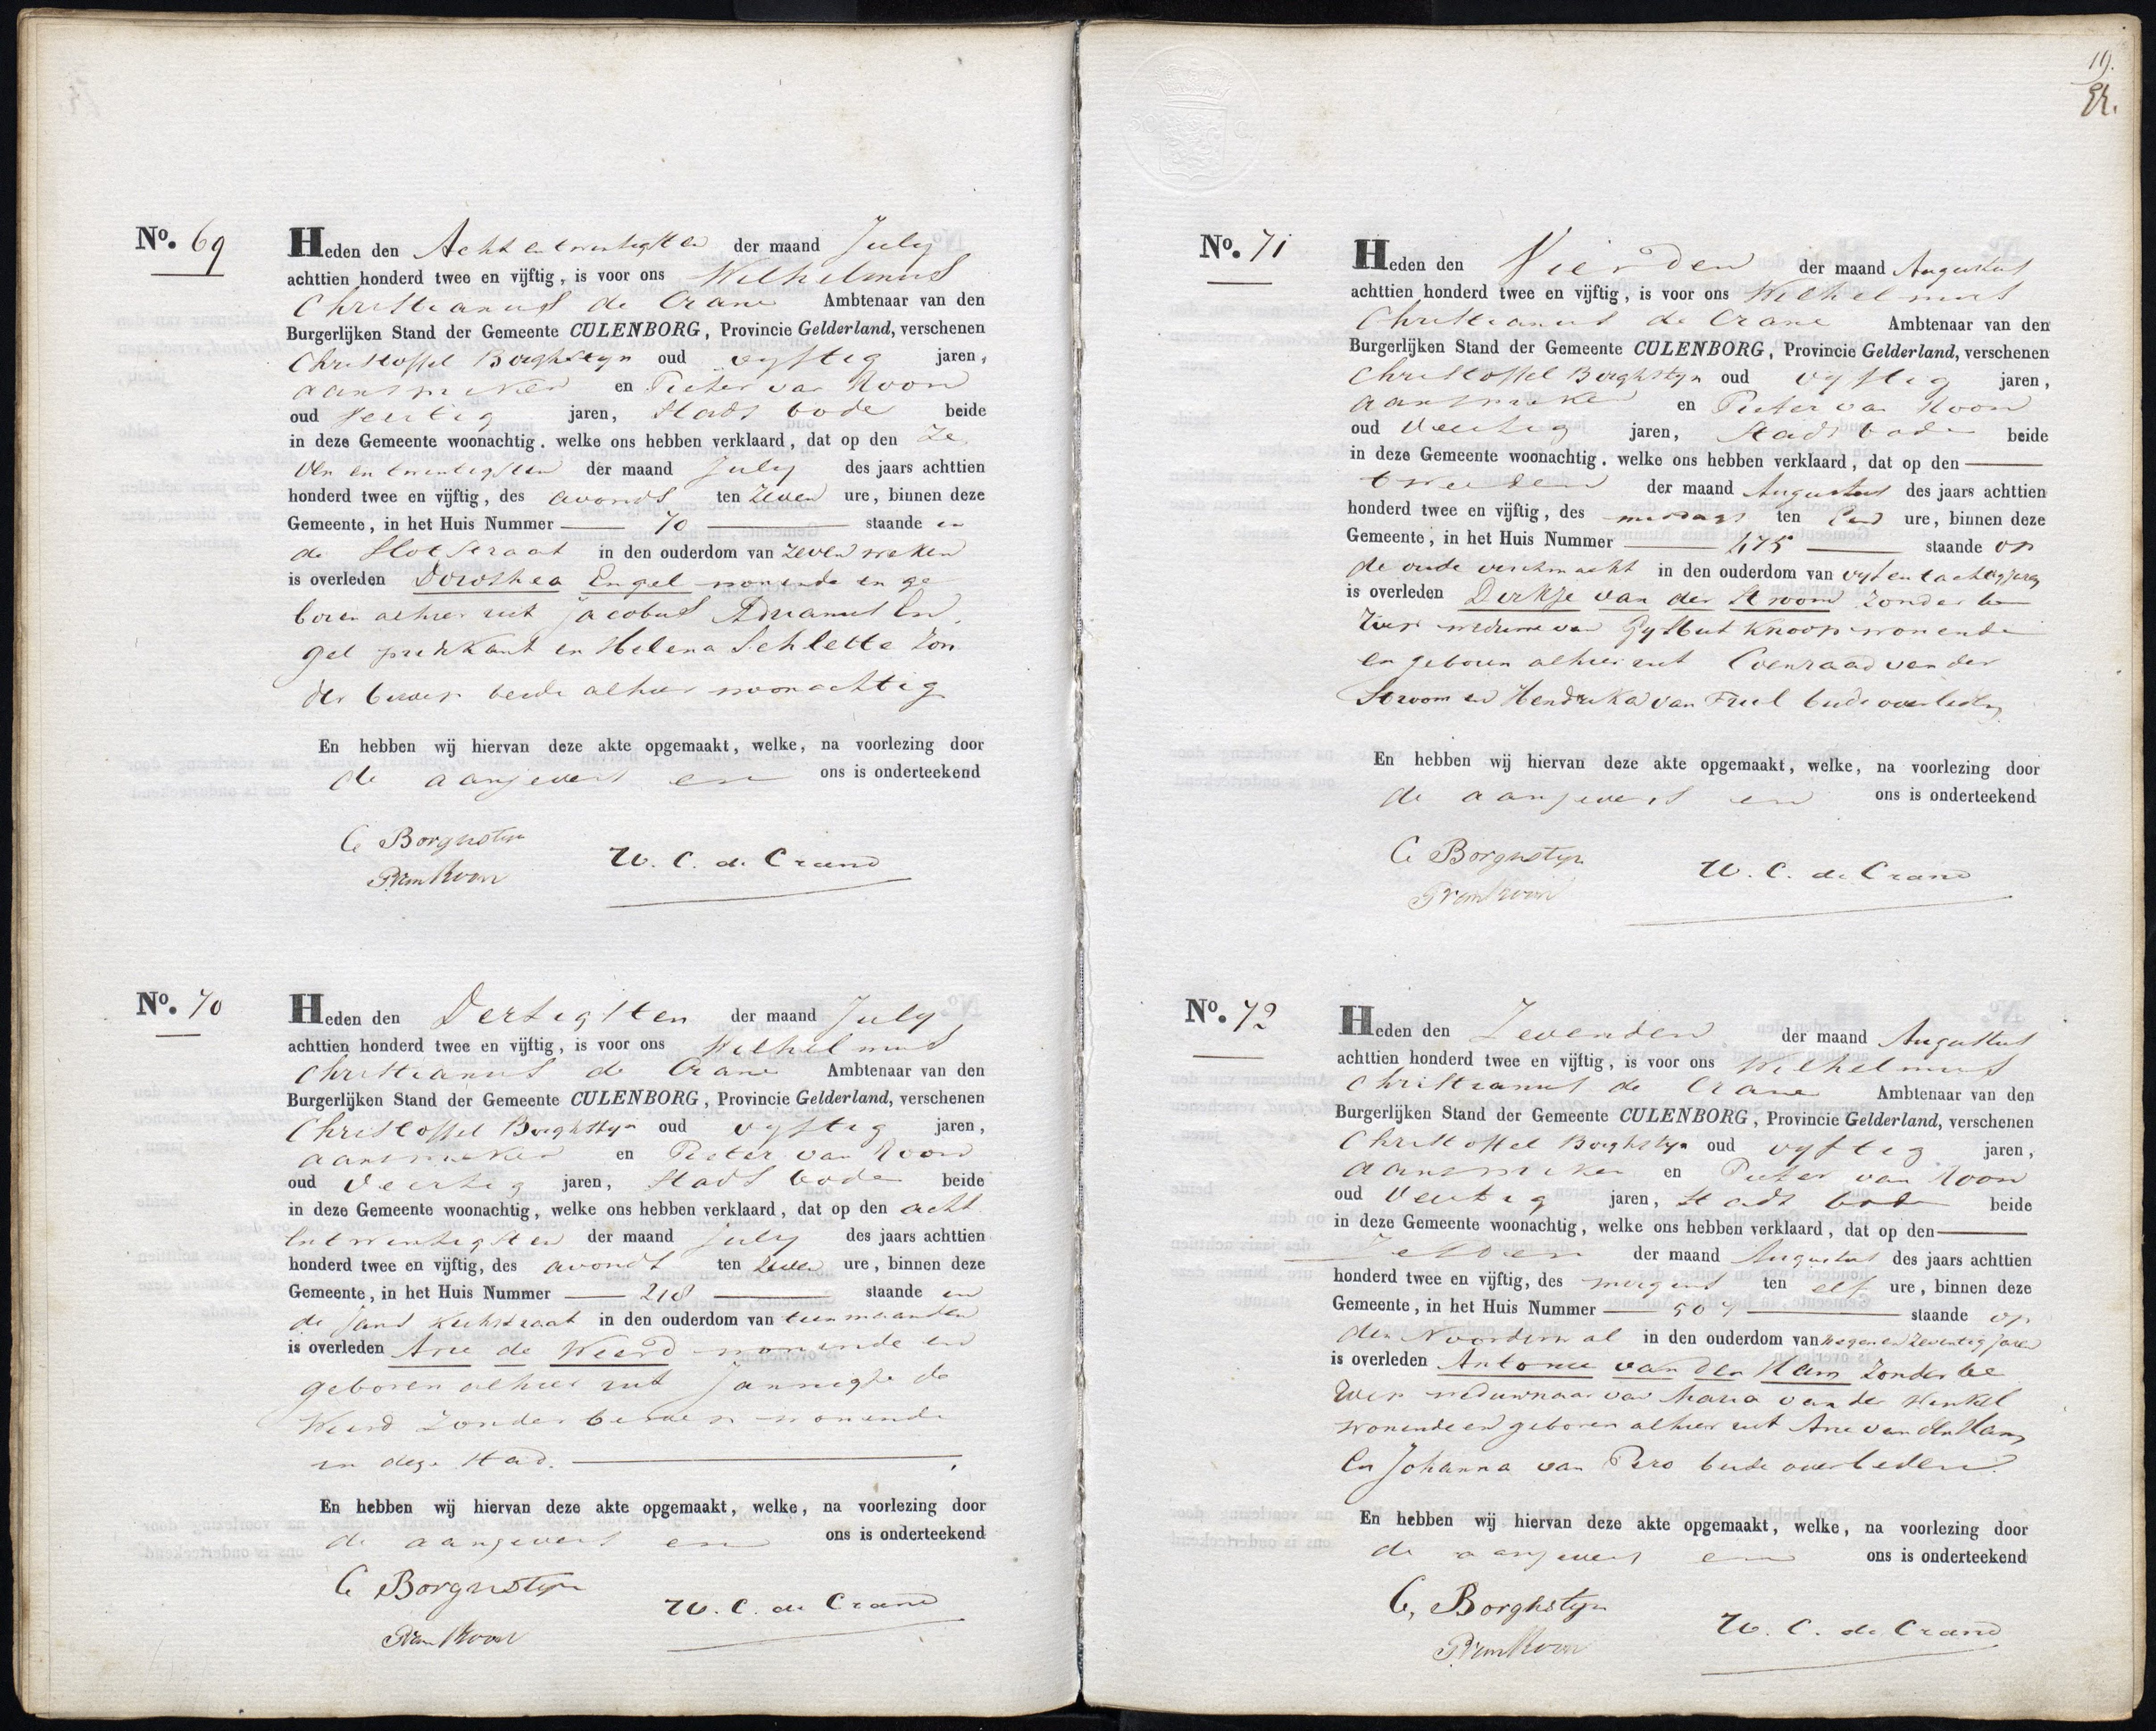 No. 69
Heden den Acht en twintigsten der maand July
achttien honderd twee en vijftig, is voor ons Wilhelmus
Christianus de Crane Ambtenaar van den
Burgerlijken Stand der Gemeente CULENBORG, Provincie Gelderland, verschenen
Christoffel Borghstyn oud vyftig jaren,
aanspreker en Pieter van Roon
oud Veertig jaren, Stads bode beide
in deze Gemeente woonachtig, welke ons hebben verklaard, dat op den Ze
ven en twintigsten der maand July des jaars achttien
honderd twee en vijftig, des avonds ten Zeven ure, binnen deze
Gemeente, in het Huis Nummer 70 staande in
de Slotstraat in den ouderdom van Zeven weken
is overleden Dorothea Engel wonende en ge
boren alhier uit Jacobus Adrianus En,
gel predikant en Helena Schlette Zon
der beroep beide alhier woonachtig
En hebben wij hiervan deze akte opgemaakt, welke, na voorlezing door
de aangevers en ons is onderteekend
C Borghstyn
P van Roon
W. C. de Crane
No. 70
Heden den Dertigsten der maand July
achttien honderd twee en vijftig, is voor ons Wilhelmus
Christianus de Crane Ambtenaar van den
Burgerlijken Stand der Gemeente CULENBORG, Provincie Gelderland, verschenen
Christoffel Borghstyn oud vyftig jaren,
aanspreker en Pieter van Roon
oud Veertig jaren, Stads bode beide
in deze Gemeente woonachtig, welke ons hebben verklaard, dat op den acht
en twintigsten der maand July des jaars achttien
honderd twee en vijftig, des avonds ten Zeven ure, binnen deze
Gemeente, in het Huis Nummer 218 staande in
de Sant Kerkstraat in den ouderdom van tien maanden
is overleden Arie de Weerd wonende en
geboren alhier uit Jannigje de
Weerd Zonder beroep wonende
in deze Stad.
En hebben wij hiervan deze akte opgemaakt, welke, na voorlezing door
de aangevers en ons is onderteekend
C Borghstyn
P van Roon
W. C. de Crane
19.
No. 71
Heden den Vierden der maand Augustus
achttien honderd twee en vijftig, is voor ons Wilhelmus
Christianus de Crane Ambtenaar van den
Burgerlijken Stand der Gemeente CULENBORG, Provincie Gelderland, verschenen
Christoffel Borghstyn oud vyftig jaren,
aanspreker en Pieter van Roon
oud Veertig jaren, Stads bode beide
in deze Gemeente woonachtig, welke ons hebben verklaard, dat op den
tweeden der maand Augustus des jaars achttien
honderd twee en vijftig, des middags ten een ure, binnen deze
Gemeente, in het Huis Nummer 475 staande op
de oude vischmarkt in den ouderdom van vyf en tachtig jaren
is overleden Dirkje van der Stroom Zonder be
roep weduwe van Gysbert Knoop wonende
en geboren alhier uit Coenraad van der
Stroom en Hendrika van Triel beide overleden
En hebben wij hiervan deze akte opgemaakt, welke, na voorlezing door
de aangevers en ons is onderteekend
C Borghstyn
P van Roon
W. C. de Crane
No. 72
Heden den Zevenden der maand Augustus
achttien honderd twee en vijftig, is voor ons Wilhelmus
Christianus de Crane Ambtenaar van den
Burgerlijken Stand der Gemeente CULENBORG, Provincie Gelderland, verschenen
Christoffel Borghstyn oud vyftig jaren,
aanspreker en Pieter van Roon
oud Veertig jaren, Stads bode beide
in deze Gemeente woonachtig, welke ons hebben verklaard, dat op den
Zesden der maand Augustus des jaars achttien
honderd twee en vijftig, des morgens ten elf ure, binnen deze
Gemeente, in het Huis Nummer 507 staande op
den Noorderwal in den ouderdom van negen en Zeventig jaren
is overleden Antonie van den Ham Zonder be
roep weduwnaar van Maria van der Henkel
wonende en geboren alhier uit Arie van den Ham
en Johanna van Piro beide overleden.
En hebben wij hiervan deze akte opgemaakt, welke, na voorlezing door
de aangevers en ons is onderteekend
C, Borghstyn
P van Roon
W. C. de Crane